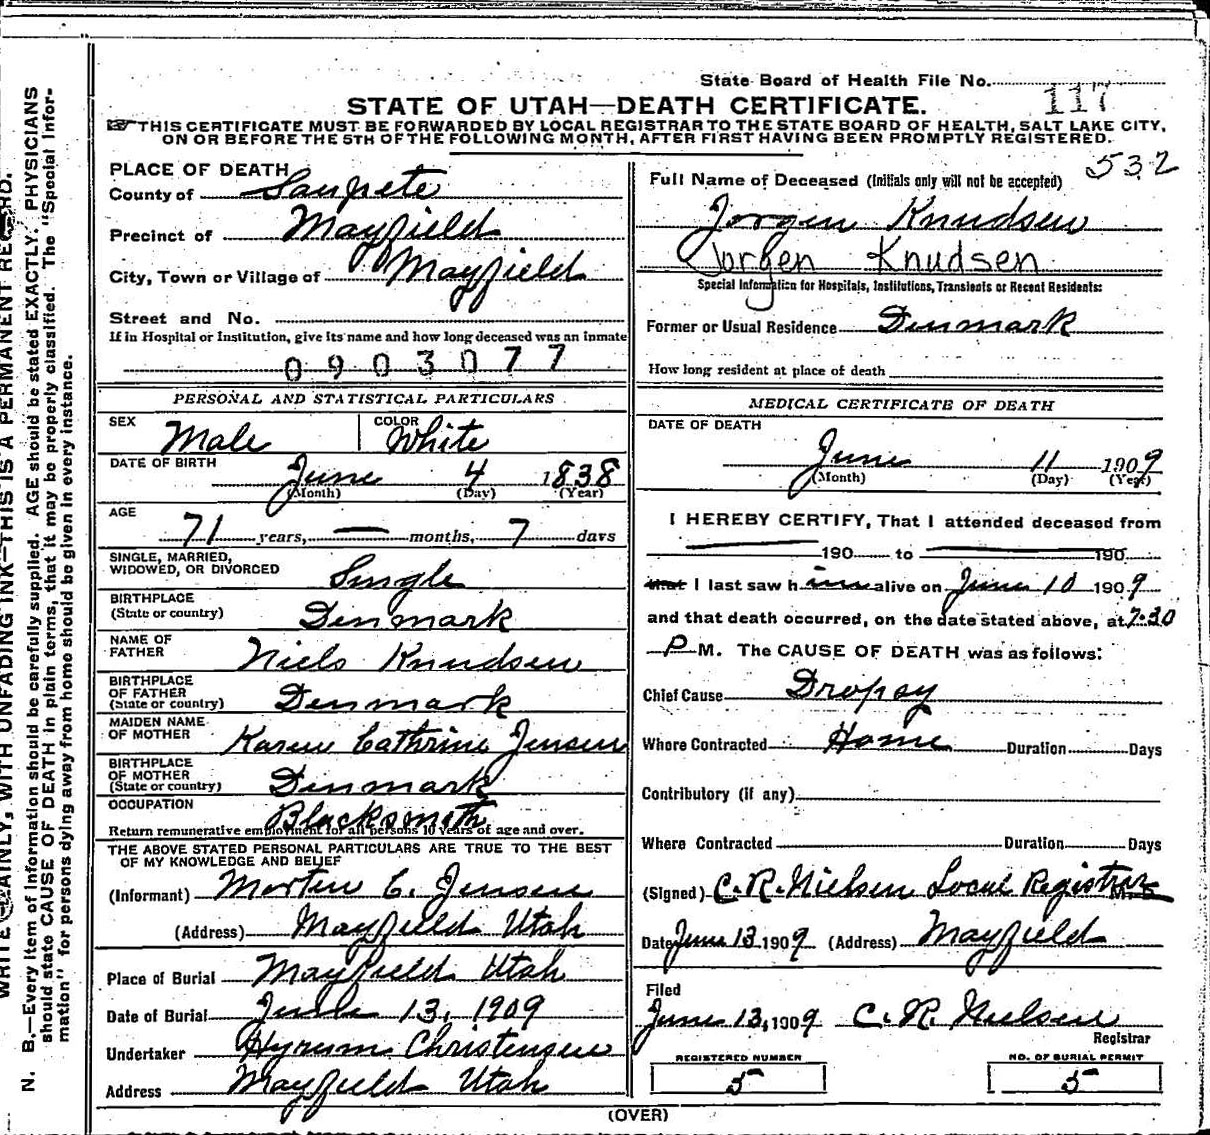 State Board of Health File No. 117
STATE OF UTAH—DEATH CERTIFICATE.
THIS CERTIFICATE MUST BE FORWARDED BY LOCAL REGISTRAR TO THE STATE BOARD OF HEALTH, SALT LAKE CITY,
ON OR BEFORE THE 5TH OF THE FOLLOWING MONTH, AFTER FIRST HAVING BEEN PROMPTLY REGISTERED.
532
PLACE OF DEARTH
County of Sanpete
Precinct of Mayfield
City, Town or Village of Mayfield
Street and No.
If in Hospital or Institution, give its name and how long deceased was an inmate
0903077
PERSONAL AND STATISTICAL PARTICULARS
SEX Male COLOR White
DATE OF BIRTH June 4 1838
(Month) (Day) (Year)
AGE
71 years, — months, 7 days
SINGLE, MARRIED,
WIDOWED, OR DIVORCED Single
BIRTHPLACE
(State or country) Denmark
NAME OF
FATHER Niels Knudsen
BIRTHPLACE
OF FATHER
(State or country) Denmark
MAIDEN NAME
OF MOTHER Karen Cathrine Jensen
BIRTHPLACE
OF MOTHER
(State or country) Denmark
OCCUPATION Blacksmith
Return remunerative employment for all persons 10 years of age and over.
THE ABOVE STATED PERSONAL PARTICULARS ARE TRUE TO THE BEST
OF MY KNOWLEDGE AND BELIEF
(Informant) Morten C. Jensen
(Address) Mayfield Utah
Place of Burial Mayfield Utah
Date of Burial June 13, 1909
Undertaker Hyrum Christensen
Address Mayfield Utah
Full Name of Deceased (Initials only will not be accepted)
Jorgen Knudsen
Jorgen Knudsen
Special Information for Hospitals, Institutions, Transients or Recent Residents:
Former or Usual Residence Denmark
How long resident at place of death
MEDICAL CERTIFICATE OF DEATH
DATE OF DEATH
June 11 1909
(Month) (Day) (Year)
I HEREBY CERTIFY, That I attended deceased from
— 190 to — 190
that I last saw him alive on June 10 1909
and that death occurred, on the date stated above, at 7:30
P M. The CAUSE OF DEATH was as follows:
Chief Cause Dropsy
Where Contracted Home Duration Days
Contributory (if any)
Where Contracted Duration Days
(Signed) C. R. Nielsen Local Registrar
Date June 13 1909 (Address) Mayfield
Filed
June 13, 1909 C. R. Nielsen
Registrar
REGISTERED NUMBER
5
NO. OF BURIAL PERMIT
5
(OVER)
N. B.—Every item of information should be carefully supplied. AGE should be stated EXACTLY. PHYSICIANS
should state CAUSE OF DEATH in plain terms, that it may be properly classified. The "Special Infor-
mation" for persons dying away from home should be given in every instance.
WRITE PLAINLY, WITH UNFADING INK—THIS IS A PERMANENT RECORD.